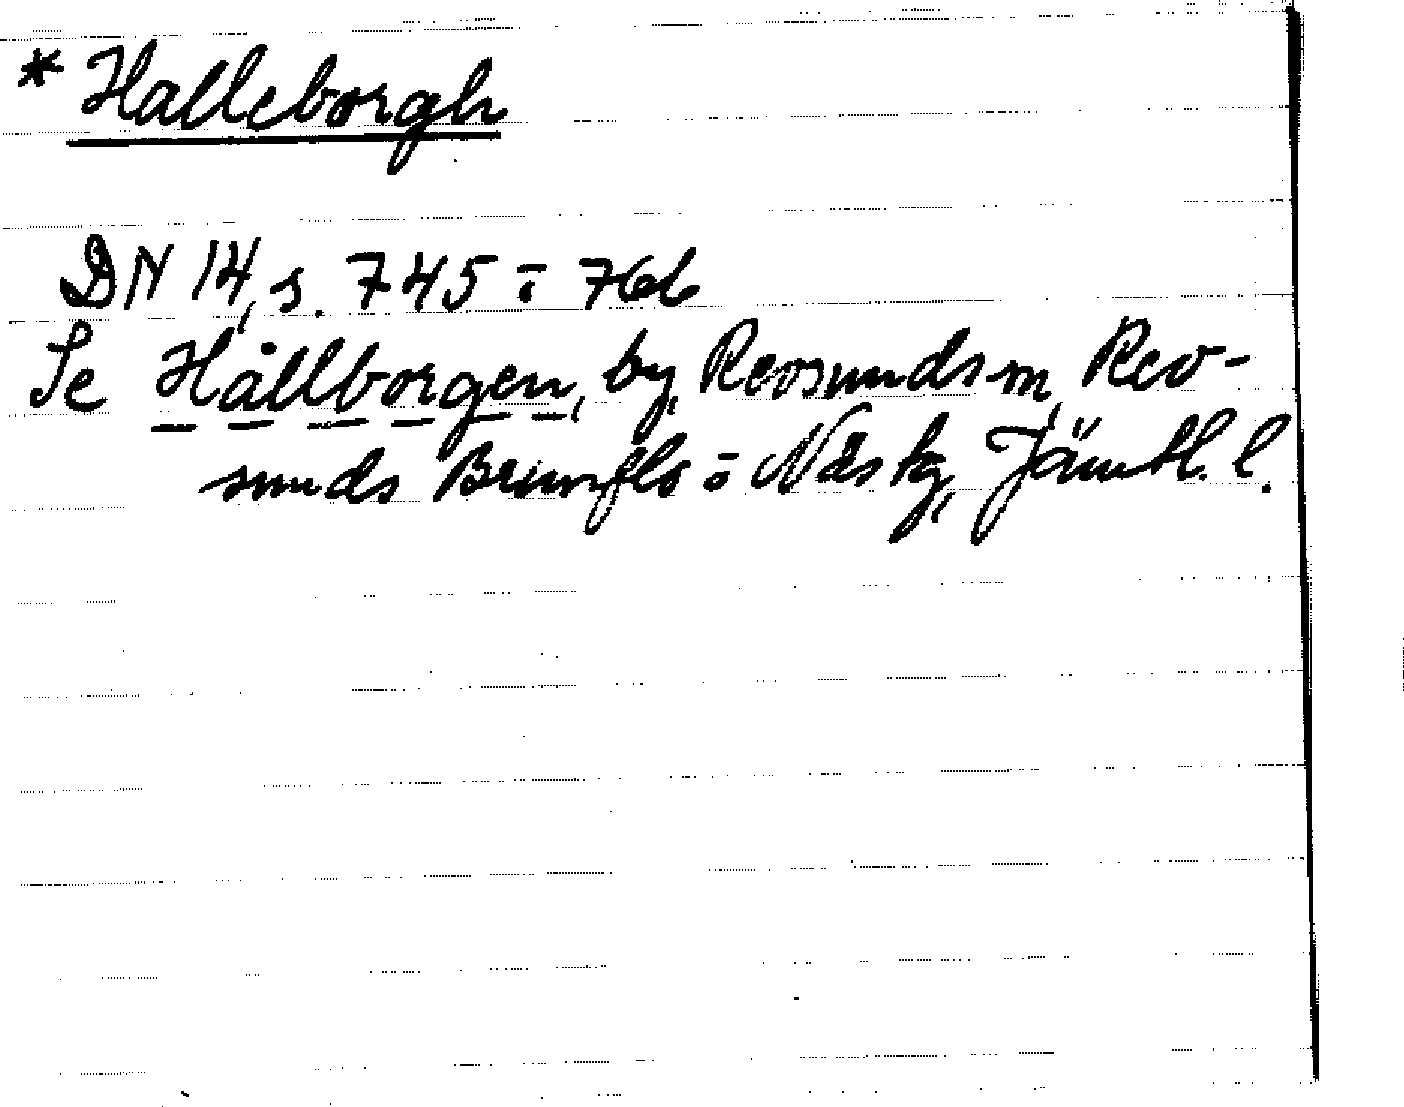 * Halleborgh
DN 14, s. 745 o 766
Se Hålborgen, by, Revsunds sn, Rev-
sunds Brunflo o Näs tg, Jämtl. l.